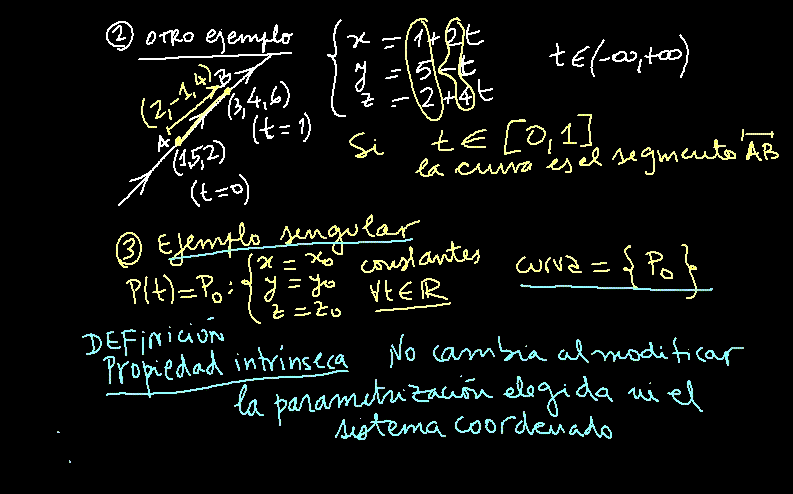 ② OTRO ejemplo
x = 1 + 2t
y = 5 - t
z = 2 + 4t
t ∈ (-∞, +∞)
(2, -1, 4)
B
(3, 4, 6)
(t = 1)
A
(1, 5, 2)
(t = 0)
Si t ∈ [0, 1]
la curva es el segmento AB
③ Ejemplo singular
P(t) = P₀ : { x = x₀ constantes
y = y₀ ∀t ∈ ℝ
z = z₀
curva = { P₀ }
DEFINICIÓN
Propiedad intrínseca No cambia al modificar
la parametrización elegida ni el
sistema coordenado